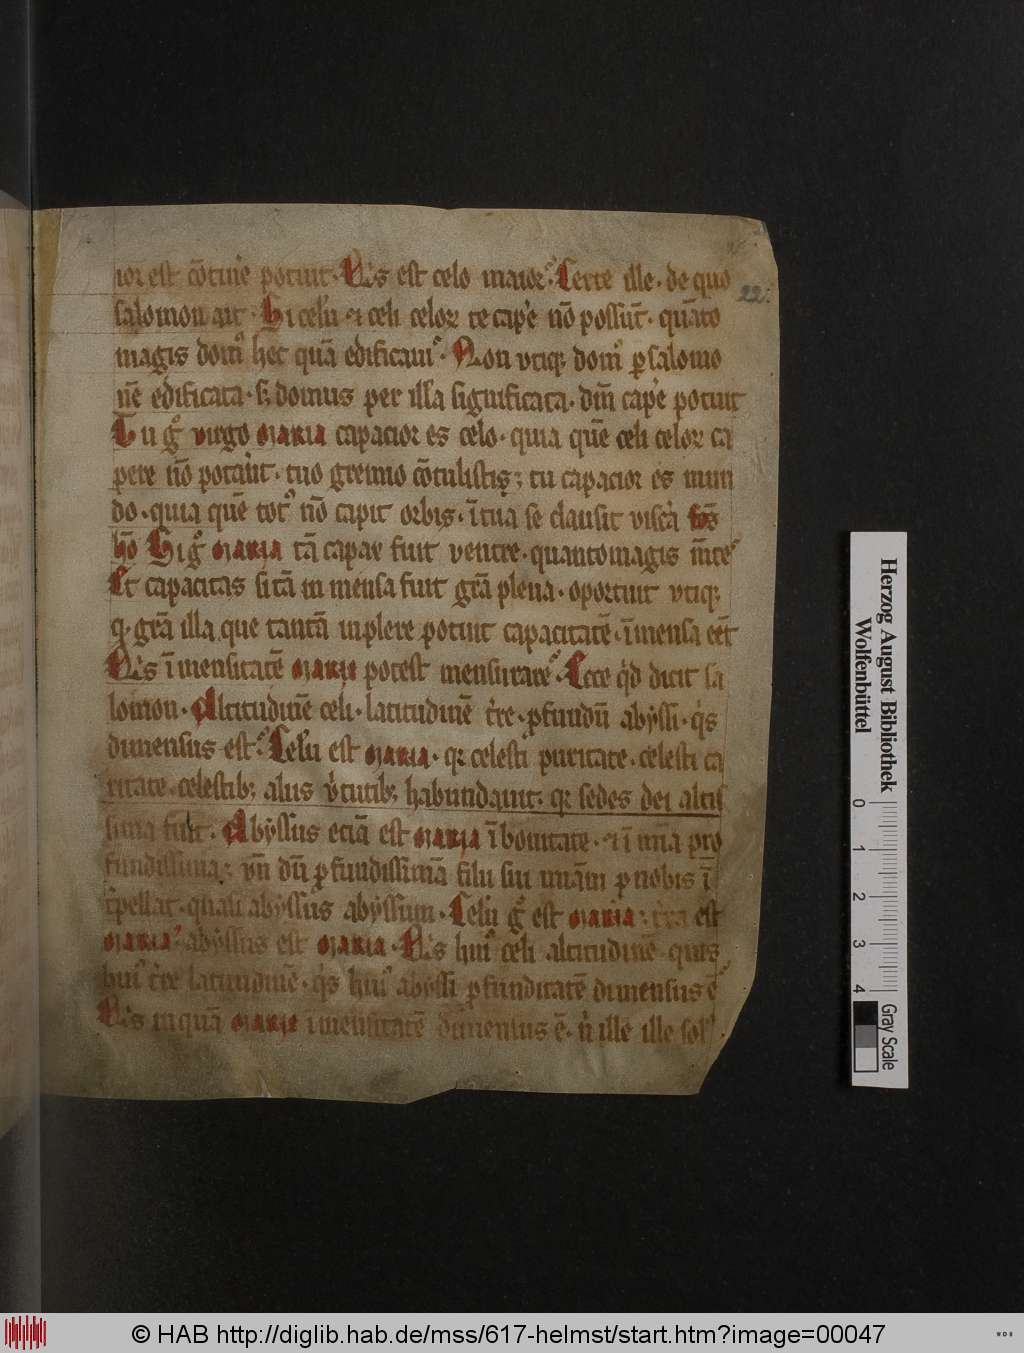 ior est cōtine᷑ potuit · Q's est celo maior · Certe ille · de quo
22.
salomon ait · Si celū · ⁊ celi celoꝝ te cape᷑ nō possūt · quāto
magis domꝰ hec quā edificauiꝰ · Non vtiqꝫ domꝰ ꝑ salomo
nē edificata · sꝫ domus per illā significata · dn̄m cape᷑ potuit
Tu gͦ virgo maria capacior es celo · quia quē celi celoꝝ ca
pere nō poterāt · tuo gremio cōtulistis ; tu capacior es mun
do · quia quē totꝰ nō capit orbis · ī tua se clausit visce᷑a fc̄s
hō Si gͦ maria tā capax fuit ventre · quanto magis m̄te
Et capacitas si tā in mensa fuit gr̄a plena · oportuit vtiqꝫ
ꝙ gr̄a illa que tantā inplere potuit capacitatē · īmensa eēt
Q's īmensitatē marie potest mensurare · Ecce qͥd dicit sa
lomon · Altitudinē celi · latitudinē t᷑re · ꝓfundū abyssi · qͥs
dimensus est · Celū est maria · qꝛ celesti puritate · celesti ca
ritate · celestibꝫ aliis v᷑tutibꝫ habundauit · qꝛ sedes dei altis
sima fuit · Abyssus eciā est maria ī bonitate · ⁊ ī mīa pro
fundissima ; vn̄ dū ꝓfundissimā filii sui mīam ꝓ nobis ī
t᷑pellat · quasi abyssus abyssum · Celū gͦ est maria · t᷑ra est
maria · abyssus est maria · Q's huiꝰ celi altitudinē · quis
huiꝰ t᷑re latitudinē · qͥs huiꝰ abyssi ꝓfunditatē dimensus ē
Q's inquā marie īmensitatē dimensus ē · nͥ ille ille solꝰ
Herzog August Bibliothek
Wolfenbüttel
0 1 2 3 4
Gray Scale
© HAB http://diglib.hab.de/mss/617-helmst/start.htm?image=00047